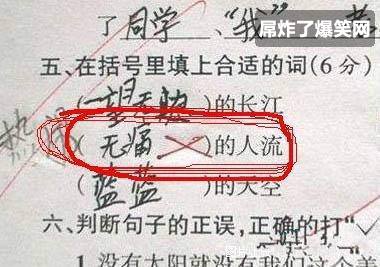 屌炸了爆笑网
了同学、“我”
五、在括号里填上合适的词(6分)
(一望无边)的长江
(无痛)的人流
(蓝蓝)的天空
六、判断句子的正误，正确的打“√
1.没有太阳就没有我们这个美